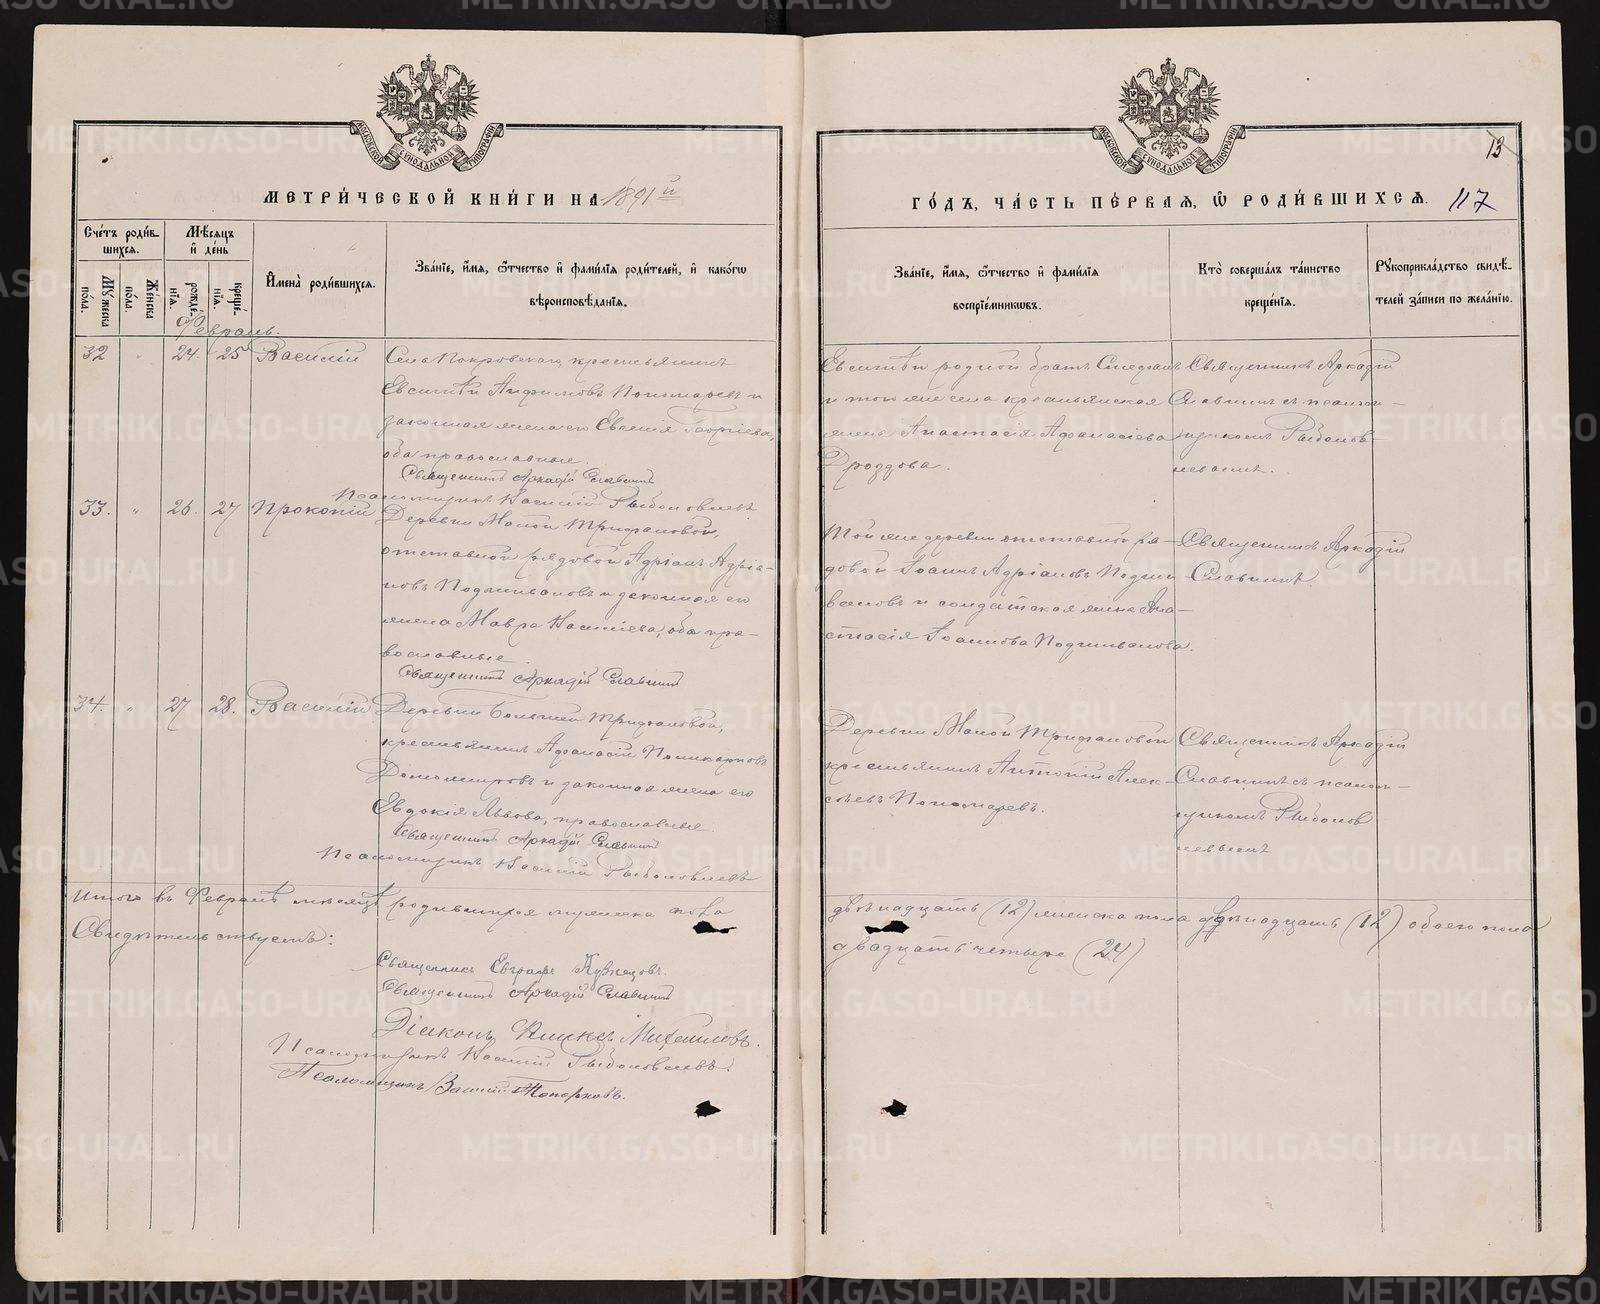 МЕТРИ́ЧЕСКОЙ КНИ́ГИ НА 1891й
ГО́ДЪ, ЧА́СТЬ ПЕ́РВАЯ, Ѡ РОДИ́ВШИХСЯ. 117
13
МОСКОВСКОЙ СѴНОДАЛЬНОЙ ТИПОГРАФІИ
МОСКОВСКОЙ СѴНОДАЛЬНОЙ ТИПОГРАФІИ
Сче́тъ роди́вшихся.
Му́жеска по́ла.
Же́нска по́ла.
Мѣ́сяцъ и҆ де́нь
рожде́нїя.
креще́нїя.
И҆мена̀ роди́вшихся.
Зва́нїе, и҆́мя, ѻ҆́тчество и҆ фами́лїя роди́телей, и҆ како́гѡ
вѣроисповѣ́данїя.
Зва́нїе, и҆́мя, ѻ҆́тчество и҆ фами́лїя
воспрїе́мникѡвъ.
Кто̀ соверша́лъ та́инство
креще́нїя.
Рꙋкоприкла́дство свидѣ́-
телей за́писи по жела́нїю.
Февраль.
32 " 24. 25 Василій
Села Покровскаго крестьянинъ
Евсигній Анфимовъ Пономаревъ и
законная жена его Евгенія Георгіева,
оба православные.
Священникъ Аркадій Славнинъ
Псаломщикъ Василій Рыболовлевъ
Евсигнѣи родной братъ Стефанъ
и того же села крестьянская
жена Анастасія Афанасіева
Дроздова.
Священникъ Аркадій
Славнинъ съ псалом-
щикомъ Рыболов-
левымъ.
33. " 26. 27 Прокопій
Деревни Малой Трифановой,
отставной рядовой Адріанъ Адріа-
новъ Подшиваловъ и законная его
жена Мавра Василіева, оба пра-
вославные.
Священникъ Аркадій Славнинъ
Той же деревни отставной ря-
довой Іоаннъ Адріановъ Подши-
валовъ и солдатская жена Ана-
стасія Іоаннова Подшивалова.
Священникъ Аркадій
Славнинъ.
34. " 27 28. Василій
Деревни Большой Трифановой,
крестьянинъ Афанасій Поликарповъ
и законная жена его
Евдокія Львова, православные.
Священникъ Аркадій Славнинъ
Псаломщикъ Василій Рыболовлевъ
Деревни Малой Трифановой
крестьянинъ Антоній Алек-
сѣевъ Пономаревъ.
Священникъ Аркадій
Славнинъ съ псалом-
щикомъ Рыболов
левымъ
Итого въ Февралѣ мѣсяцѣ родившихся мужеска пола
двѣнадцать (12) женска пола двѣнадцать (12) обоего пола
двадцать четыре (24)
Свидѣтельствуетъ:
Священникъ Евграфъ Кузнецовъ.
Священникъ Аркадій Славнинъ
Діаконъ Михайловъ.
Псаломщикъ Василій Рыболовлевъ.
Псаломщикъ Василій Топорковъ.
METRIKI.GASO-URAL.RU